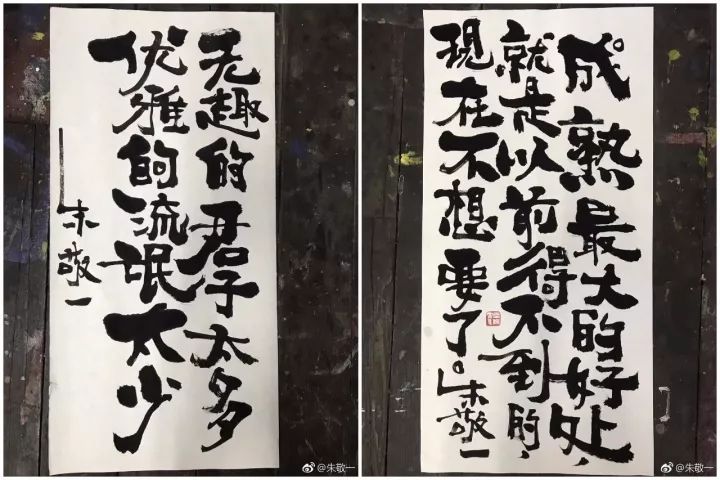 无趣的君子太多
优雅的流氓太少
朱敬一
成熟最大的好处，
就是以前得不到的，
現在不想要了。
朱敬一
@朱敬一
@朱敬一